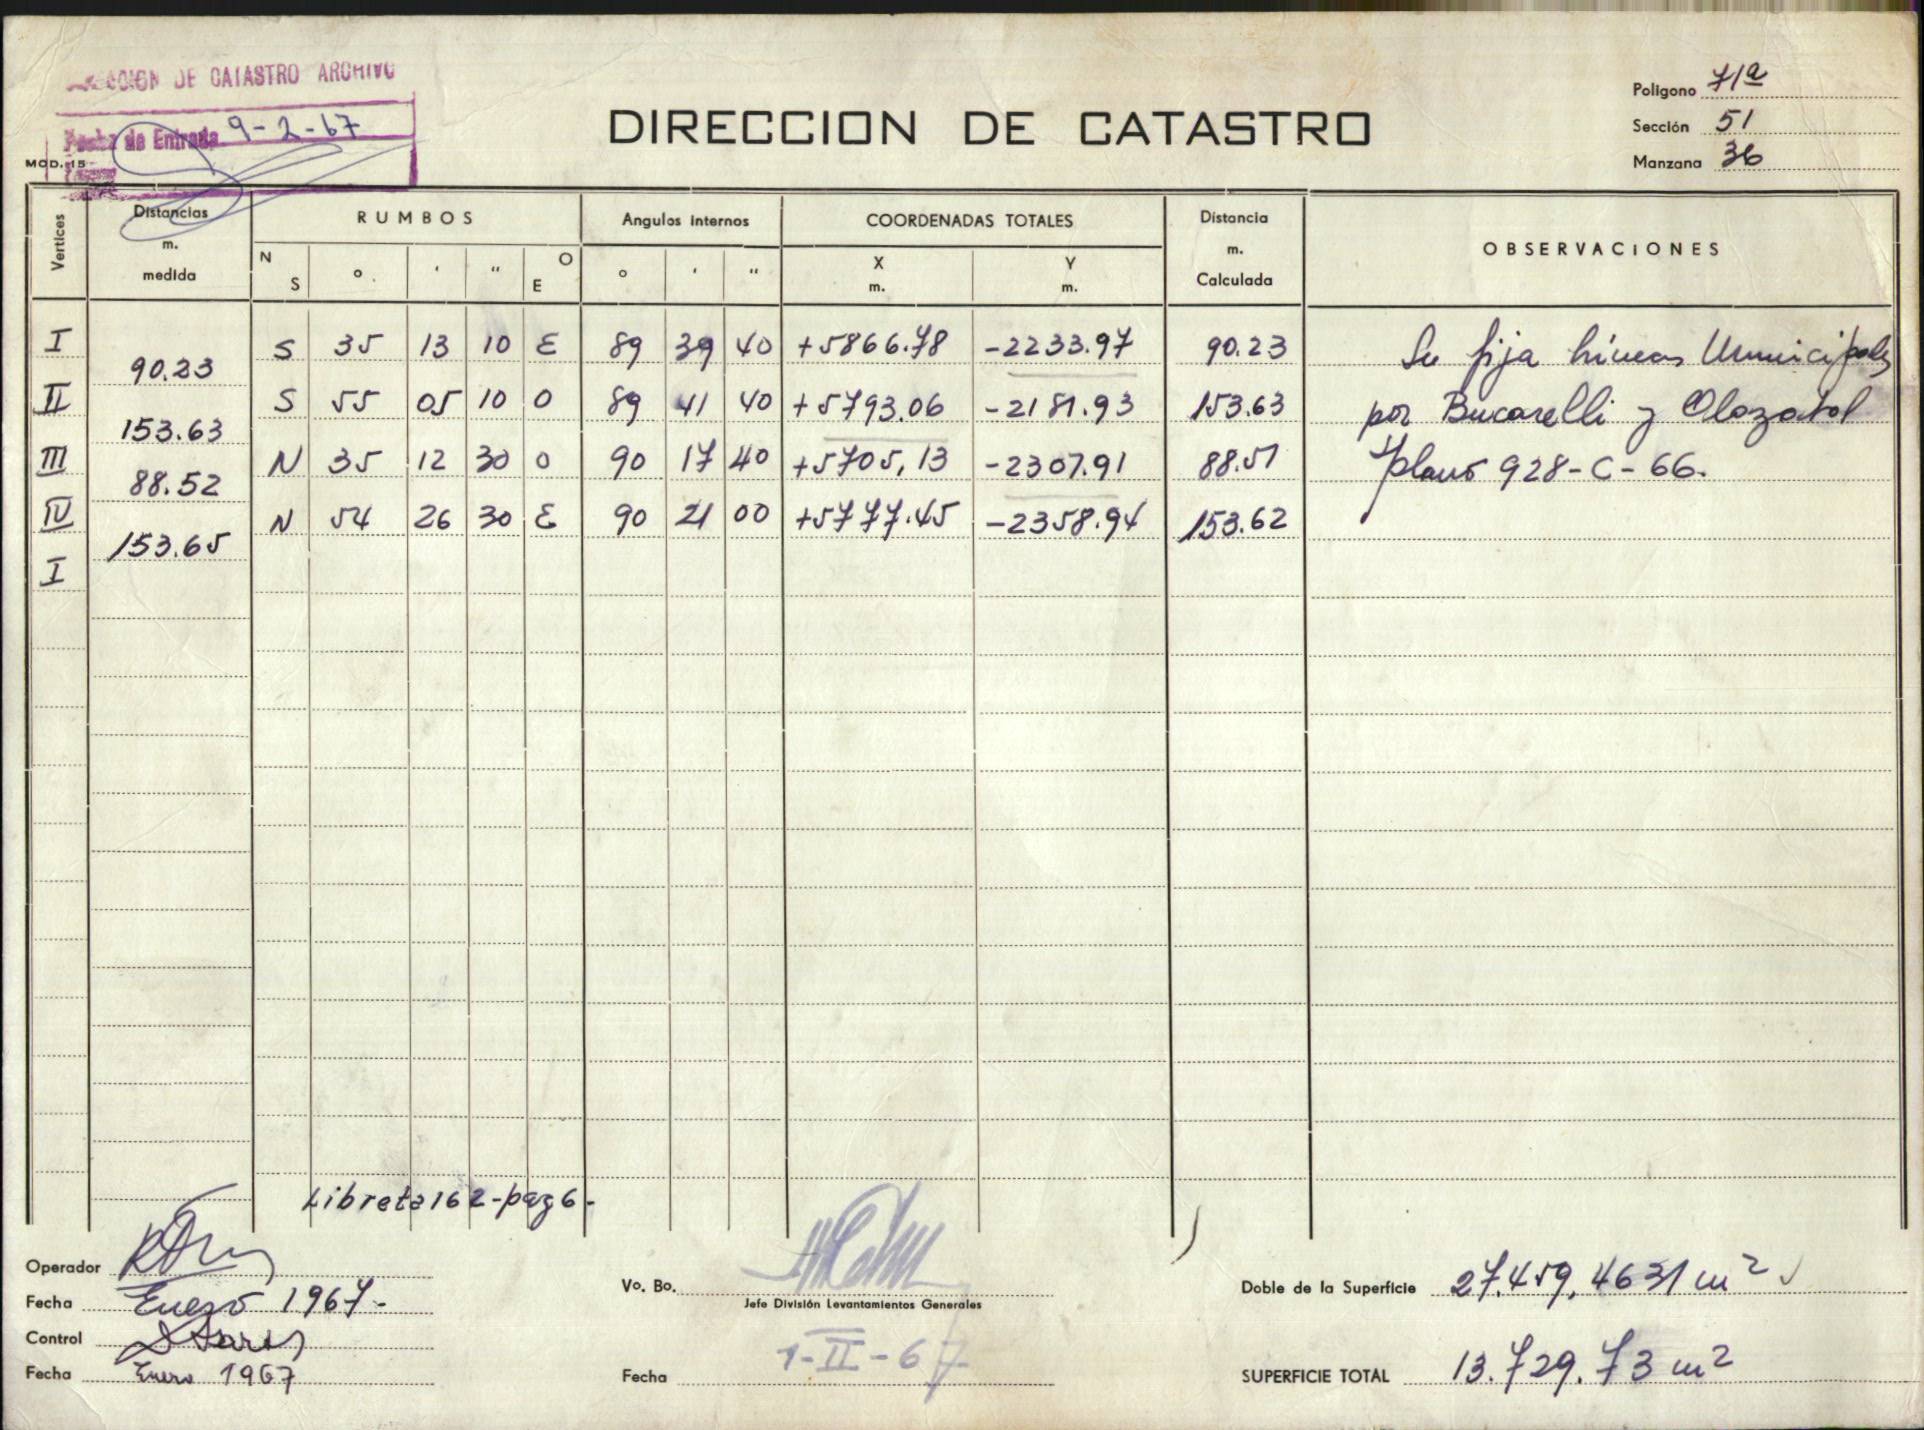 DE CATASTRO ARCHIVO
Fecha de Entrada 9-2-67
MOD. 15
DIRECCION DE CATASTRO
Poligono 71ª
Sección 51
Manzana 36
Vertices Distancias m. medida RUMBOS Angulos internos COORDENADAS TOTALES Distancia m. Calculada OBSERVACIONES
N S ° ' " O E ° ' " X m. Y m.
I S 35 13 10 E 89 39 40 +5866.78 -2233.97 90.23 Se fija líneas Municipales
90.23
II S 55 05 10 O 89 41 40 +5793.06 -2181.93 153.63 por Bucarelli y Olazabal
153.63
III N 35 12 30 O 90 17 40 +5705,13 -2307.91 88.51 plano 928-C-66.
88.52
IV N 54 26 30 E 90 21 00 +5777.45 -2358.94 153.62
153.65
I
Libreta 162-pag 6-
Operador
Fecha Enero 1967-
Control
Fecha Enero 1967
Vo. Bo.
Jefe División Levantamientos Generales
Fecha 1-II-67-
Doble de la Superficie 27.459,4631 m2
SUPERFICIE TOTAL 13.729.73 m2